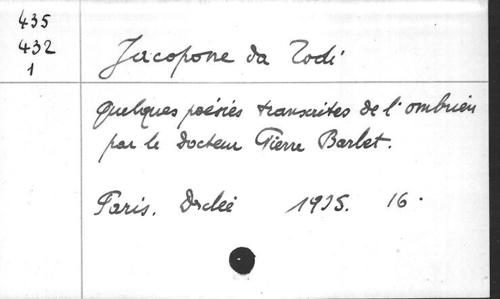 435
432
1
Jacopone da Todi
Quelques poésies transcrites de l'ombrien
par le Docteur Pierre Barbet.
Paris. 1935. 16.